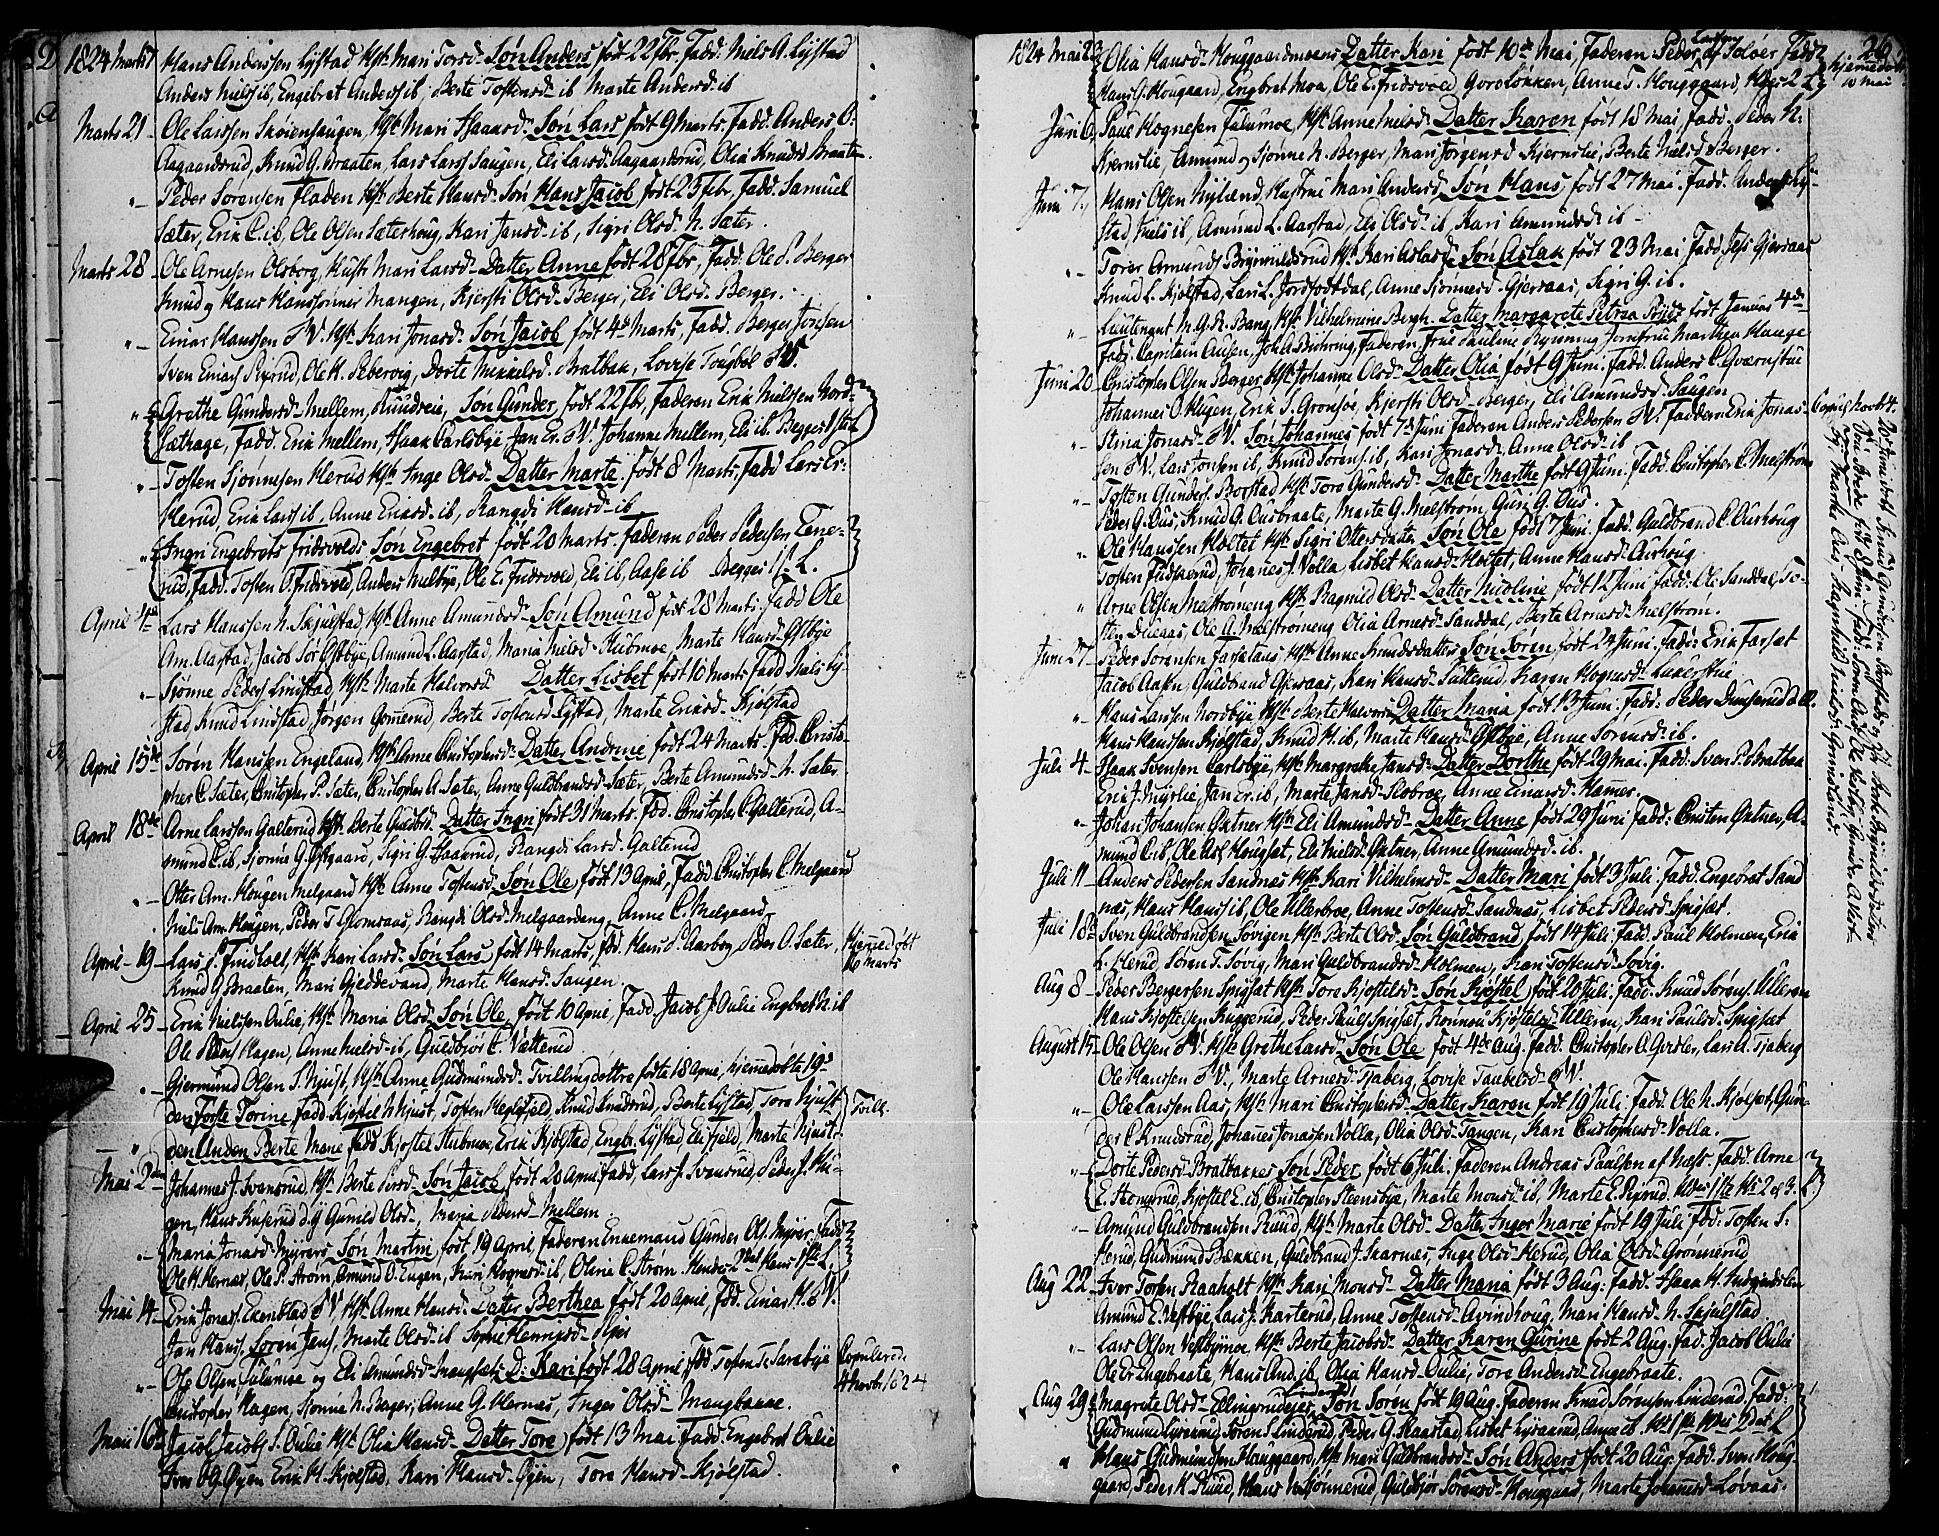 1824 Marts 7 Hans Anderssen Lystad Hst. Mari Torsd. Søn Anders født 22 Fbr. Fadd. Niels A. Lystad
Anders Niels ib, Engebret Anders ib, Berte Tostensd. ib Marte Andersd. ib
Marts 21 Ole Larssen Skøienhaugen, Hst. Mari Haaarsd. Søn Lars født 9 Marts. Fadd. Anders O.
Aagaardsrud, Knud G. Braaten, Lars Larss Haugen, Eli Larsd. Aagaardsrud, Olia Knudsd. Braaten.
"– Peder Sørensen Fladen Hst. Berte Hansd. Søn Hans Jacob født 25 Fbr. Fadd. Samuel
Sæter, Erik C. ib, Ole Olsen Sæterhoug, Kari Jansd. ib, Sigri Olsd. N. Sæter.
Marts 28 Ole Arnesen Olsborg, Hustr. Mari Larsd. Datter Anne født 28 Fbr. Fadd. Ole S. Berger
Knud og Hans Hanssønner Mangen, Kjersti Olsd. Berger, Eli Olsd. Berger.
"– Einar Hanssen S.V. Hst. Kari Jonasd. Søn Jacob født 4de Marts, Fadd. Berger Jonsen
Sven Einars Rixrud, Ole K. Sebervig, Dorte Mikkelsd. Bratbak, Lovise S.V.
" Grethe Gundersd. Mellem, Søn Gunder, født 22 Fbr. Faderen Erik Nielssen Nord-
Sæthage, Fadd. Erik Mellem, Haak Carlsbye Jan Er. S.V. Johanne Mellem, Eli ib. Begges 1ste L.
"– Tosten Sjønnesen Herud Hst. Inge Olsd. Datter Marte født 8 Marts. Fadd. Lars Er.
Herud, Erik Larss ib, Anne Eriksd. ib, Rangdi Hansd. ib
" Ingri Engebrets Fridsvolds Søn Engebret født 20 Marts. Faderen Peder Pedersen Tene-
rud, Fadd. Tosten O. Fridsvold, Anders Melbye, Ole E. Fridsvold, Eli ib, Aase ib Begges 1. L.
April 4de Lars Hanssen N. Skjulstad Hst. Anne Amundsd. Søn Amund født 28 Marts. Fadd. Ole
Am. Aarstad, Jacob Sør Østbye, Amund L. Aarstad, Maria Nielsd. Stubmoe, Marte Hansd. Østbye
"– Sjønne Peders Lindstad, Hst. Marte Halvorsd. Datter Lisbet født 10 Marts Fadd. Niels Ly-
stad Knud Lindstad, Jørgen Gommerud, Berte Tostensd. Lystad, Marte Eriksd. Kjølstad
April 15de Søren Hanssen Engeland, Hst. Anne Christophersd. Datter Andrine født 24 Marts. Fad. Christo-
pher C. Sæter, Christopher P. Sæter, Christopher A. Sæter, Anne Guldbrandsd. Sæter, Berte Amundsd. N. Sæter.
April 18de Arne Larssen Galterud Hst. Berte Gulbrsd. Datter Ingri født 31 Marts. Fad. Christopher C. Galterud, A-
mund C. ib, Sjønne G. Østgaard, Sigri G. Haarrud, Rangdi Larsd. Galterud
"– Otter Am. Hougen Melgaard Hst. Anne Tostensd. Søn Ole født 13 April, Fadd. Christopher C. Melgaard
Niels Am. Hougen, Peder T. Glomsaas, Rangdi Olsd. Melgaardeng, Anne C. Melgaard
April – 19 Lars P. Findholt, Hst. Kari Larsd. Søn Lars født 14 Marts, Fad. Hans S. Aarbog Peder O. Sæter, Hjemmedøbt
Knud G. Braaten, Mari Gjeddevand, Marte Hansd. Haugen. 16 Marts
April 25 Erik Nielssen Oulie, Hst. Maria Olsd. Søn Ole født 10 April, Fadd. Jacob J. Oulie Engebret N. ib
Ole Peders Hagen, Anne Nielsd. ib, Guldbjør C. Vætterud
"– Gjermund Olsen S. Njust, Hst. Anne Gudmundsd. Tvillingdøttre fødte 18 April, hjemmedøbte 19d
den Første Torine Fadd. Kjøstel N. Njust, Tosten Heglefjeld, Knud Knudsrud, Berte Lystad, Tora Njust Tvill.
den Anden Berte Marie Fadd. Kjøstel Stubmoe, Erik Kjølstad, Engbr. Lystad, Eli Fjeld, Marte Njust.
Mai 2den Johannes J. Svensrud, Hst. Berte Persd. Søn Jacob født 28 April Fadd. Lars J. Svensrud, Peder J. Hu-
gen, Hans Kuserud d.y. Gunild Olsd., Maria Pedersd. Mellem
"– Maria Jonasd. Myrers Søn Martin født 19 April, Faderen Ennemand Gunder Ols. Myrer, Fadd
Ole H. Hernæs, Ole P. Strøm, Amund O. Eugen, Kari Rognesd. ib, Olene C. Strøm. Hendes 2det Hans 1ste L.
Mai 14 Erik Jonas. Ekenstad S.V. Hst. Anne Hansd. Datter Berthea født 20 April, Fad. Einar H. S.V.
Jan Hans, Søren Jens, Marte Olsd. ib Sophie Henriksd. Skjer
"– Ole Olsen Julumoe og Eli Amundsd. D: Kari født 28 April, Fad. Tosten T. Sarabye Copulerede
Christopher Hagen, Sjønne N. Bager, Anne G. Hernæs, Inger Olsd. Mangbakke. 4 Novbr. 1824
Maii 16de Jacob Jacobs S. Oulie Hst. Olia Hansd. Datter Tore født 13 Mai Fadd. Engebret Oulie
Iver O. Gyen Erik H. Kjølstad, Kari Hansd. Gyen, Tore Hansd. Kjølstad.
26
1824 Mai 23 Olia Hansd. Houggaardmoens Datter Kari født 10de Mai, Faderen Peder Larsen af Soløer Fadd hjemmedøbt
Hans G. Hougaard, Engebret Moa, Ole E. Fridsvold Goroløkken, Anne T. Houggaard, 10 Mai
Juni 6 Poul Rognesen Julumoe, Hst. Anne Nielsd. Datter Karen født 18 Mai, Fadd. Peder H.
Kjernslie, Amund og Sjønne N. Berger, Mari Jørgensd. Kjernslie, Berte Nielsd. Berger.
Juni 7 Hans Olsen Nyland, Hustrue Mari Andersd. Søn Hans født 27 Mai. Fadd. Anders Ly-
stad Niels ib, Amund L. Aarstad, Eli Olsd. ib, Kari Amundsd. ib
"– Torer Amunds Brynildsrud Hst. Kari Aslaksd. Søn Aslak født 23 Mai Fadd. Jess Gjersaas
Knud L. Kjølstad, Lars L. Jordfodtdal, Anne Sjønnesd. Gjersaas, Sigri G. ib.
" Lieutenant M.G.R. Bang, Hst. Vilhelmine Bergh. Datter Margarete Petrea født Januar 4de
Fadd. Capitain Ausen, Joh. L. Buhring, Faderen, Frue Pauline Rynning Jomfrue Marthea Hauge
Juni 20 Christopher Olsen Berger, Hst. Johanne Olsd. Datter Olia født 9 Juni. Fadd. Anders C. Gværnstue
Johannes O. Mugen, Erik S. Gronsøe, Kjersti Olsd. Berger, Eli Amundsd. Haugen
"– Stina Jonasd. S.V. Søn Johannes født 7de Juni Faderen Anders Pedersen S.V. Faddere Erik Jonas- Copul. Novb. 4.
sen S.V. Lars Jonsen ib, Knud Sørens. ib, Kari Jonasd. Anne Olsd. ib
" Tosten Gunders. Borstad Hst. Tore Gundersd. Datter Marthe født 9 Juni. Fadd. Christopher C. Melstrøm
Peder G. Ous, Knud G. Ousbraate, Marte G. Melstrøm, Guri G. Ous.
" Ole Hanssen Holtet Hst. Sigri Ottersdatter Søn Ole født 7 Juni. Fadd. Guldbrand C. Ourhoug
Tosten Fidskerud, Johannes J. Volla, Lisbet Hansd. Holtet, Anne Hansd. Ourhoug.
" Arne Olsen Melstrømeng Hst. Ragnild Olsd. Datter Nicoline født 12 Juni Fadd. Ole Sanddal, To-
sten Dueaas, Ole A. Melstrømeng Olia Arnesd. Sanddal, Berte Arnesd. Melstrøm.
Juni 27 Peder Sørensen Farsætaas Hst. Anne Knudsdatter Søn Søren født 24 Juni. Fadd. Erik Farsæt
Jacob Aasen, Guldbrand Gjersaas, Kari Hansd. Sætterud, Karen Rognesd. Lukerstue
" Hans Larssen Nordbye Hst. Berte Halvorsd. Datter Maria født 13 Juni. Fadd. Peder Dunserud d.æ.
Hans Hanssen Kjølstad, Knud H. ib, Marte Hansd. Østbye, Anne Sørensd. ib.
Juli 4 Haak Svensen Carlsbye, Hst. Margrethe Jansd. Datter Dorthe født 29 Mai. Fadd. Sven P. Bratbak
Erik J. Myrlie, Jan Er. ib, Marte Jansd. Slobroe, Anne Einarsd. Hammer.
"– Johan Johansen Øktner Hst. Eli Amundsd. Datter Anne født 29 Juni Fadd: Christen Øktner, A-
mund C. ib, Ole Asl. Housæt, Eli Nielsd. Øktner, Anne Amundsd. ib.
Juli 11 Anders Pedersen Sandnæs Hst. Kari Vilhelmsd. Datter Mari født 3 Juli. Fadd. Engebret Sand
næs, Hans Hans. ib, Ole Ullerbroe, Anne Tostensd. Sandnæs, Lisbet Pedersd. Spigsæt.
Juli 18de Sven Guldbrandsen Sovigen Hst. Berte Olsd. Søn Guldbrand født 14 Juli. Fadd. Paul Holmen, Erik
L. Herud, Søren T. Sovig, Mari Guldbrandsd. Holmen, Kari Tostensd. Sovig.
Aug 8 Peder Bergersen Spigsæt Hst. Tora Kjøstelsd. Søn Kjøstel født 20 Juli. Fadd. Knud Sørens Ulleren
Hans Kjøstelsen Ruggerud, Peder Pauls Spigsæt, Rønnou Kjøstelsd. Ulleren, Kari Paulsd. Spigsæt
August 15 Ole Olsen S.V. Hst. Grethe Larsd. Søn Ole født 4de Aug. Fadd. Christopher O. Geisler, Lars A. Tjaberg
Ole Hanssen S.V., Marte Arnesd. Tjaberg Lovise Taubelsd. S.V.
"– Ole Larssen Aas, Hst. Mari Christophersd. Datter Karen født 19 Juli. Fadd. Ole N. Kjølset, Gun-
der C. Knudsrud, Johannes Jonassen Volla, Olia Olsd. Tangen, Kari Christophersd. Volla.
"– Dorte Pedersd. Bratbakkes Søn Peder født 6 Juli. Faderen Andreas Paulsen af Næss. Fadd. Arne
E. Honnrud, Kjøstel E. ib, Christopher Steensbye, Marte Monsd. ib, Marte E. Rixrud,
"– Amund Guldbrandsen Ruud, Hst. Marte Olsd. Datter Inger Marie født 19 Juli Fad: Tosten S.
Herud, Gudmund Bækken, Guldbrand J. Skarnæs, Inge Olsd. Herud, Olia Olsd. Grønnerud
Aug 22 Iver Tosten Raaholt Hst. Kari Monsd. Datter Maria født 3 Aug: Fadd. Haak H.
Amund E. Vestbye, Lars J. Karterud, Anne Tostensd. Avindhoug, Mari Hansd. N. Skjulstad
"– Lars Olsen Vestbymoe, Hst. Berte Jacobsd. Datter Karen Gurine født 2 Aug. Fad. Jacob Oulie
Ole Er. Engebraate, Hans And. ib, Olia Hansd. Oulie, Tore Andersd. Engebraate.
Aug 29 Magrete Olsd. Søn Søren født 19 Aug. Faderen Knud Sørensen Linderud. Fadd:
Gudmund Lysaarud Søren S. Linderud, Peder G. Haastad, Lisbet Lysaarud, Anne ib.
" Hans Gudmundsen Houggaard, Hst. Mari Guldbrandsd. Søn Anders født 20 Aug. Fadd. Sven Houg-
gaard, Peder K. Ruud, Hans N. Kjønnerud, Guldbjør Sørensd. Houggaard, Marte Johannesd. Løvaas.